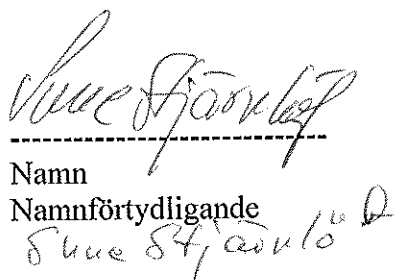 Sune Stjärnlöf
Namn
Namnförtydligande
Sune Stjärnlöf